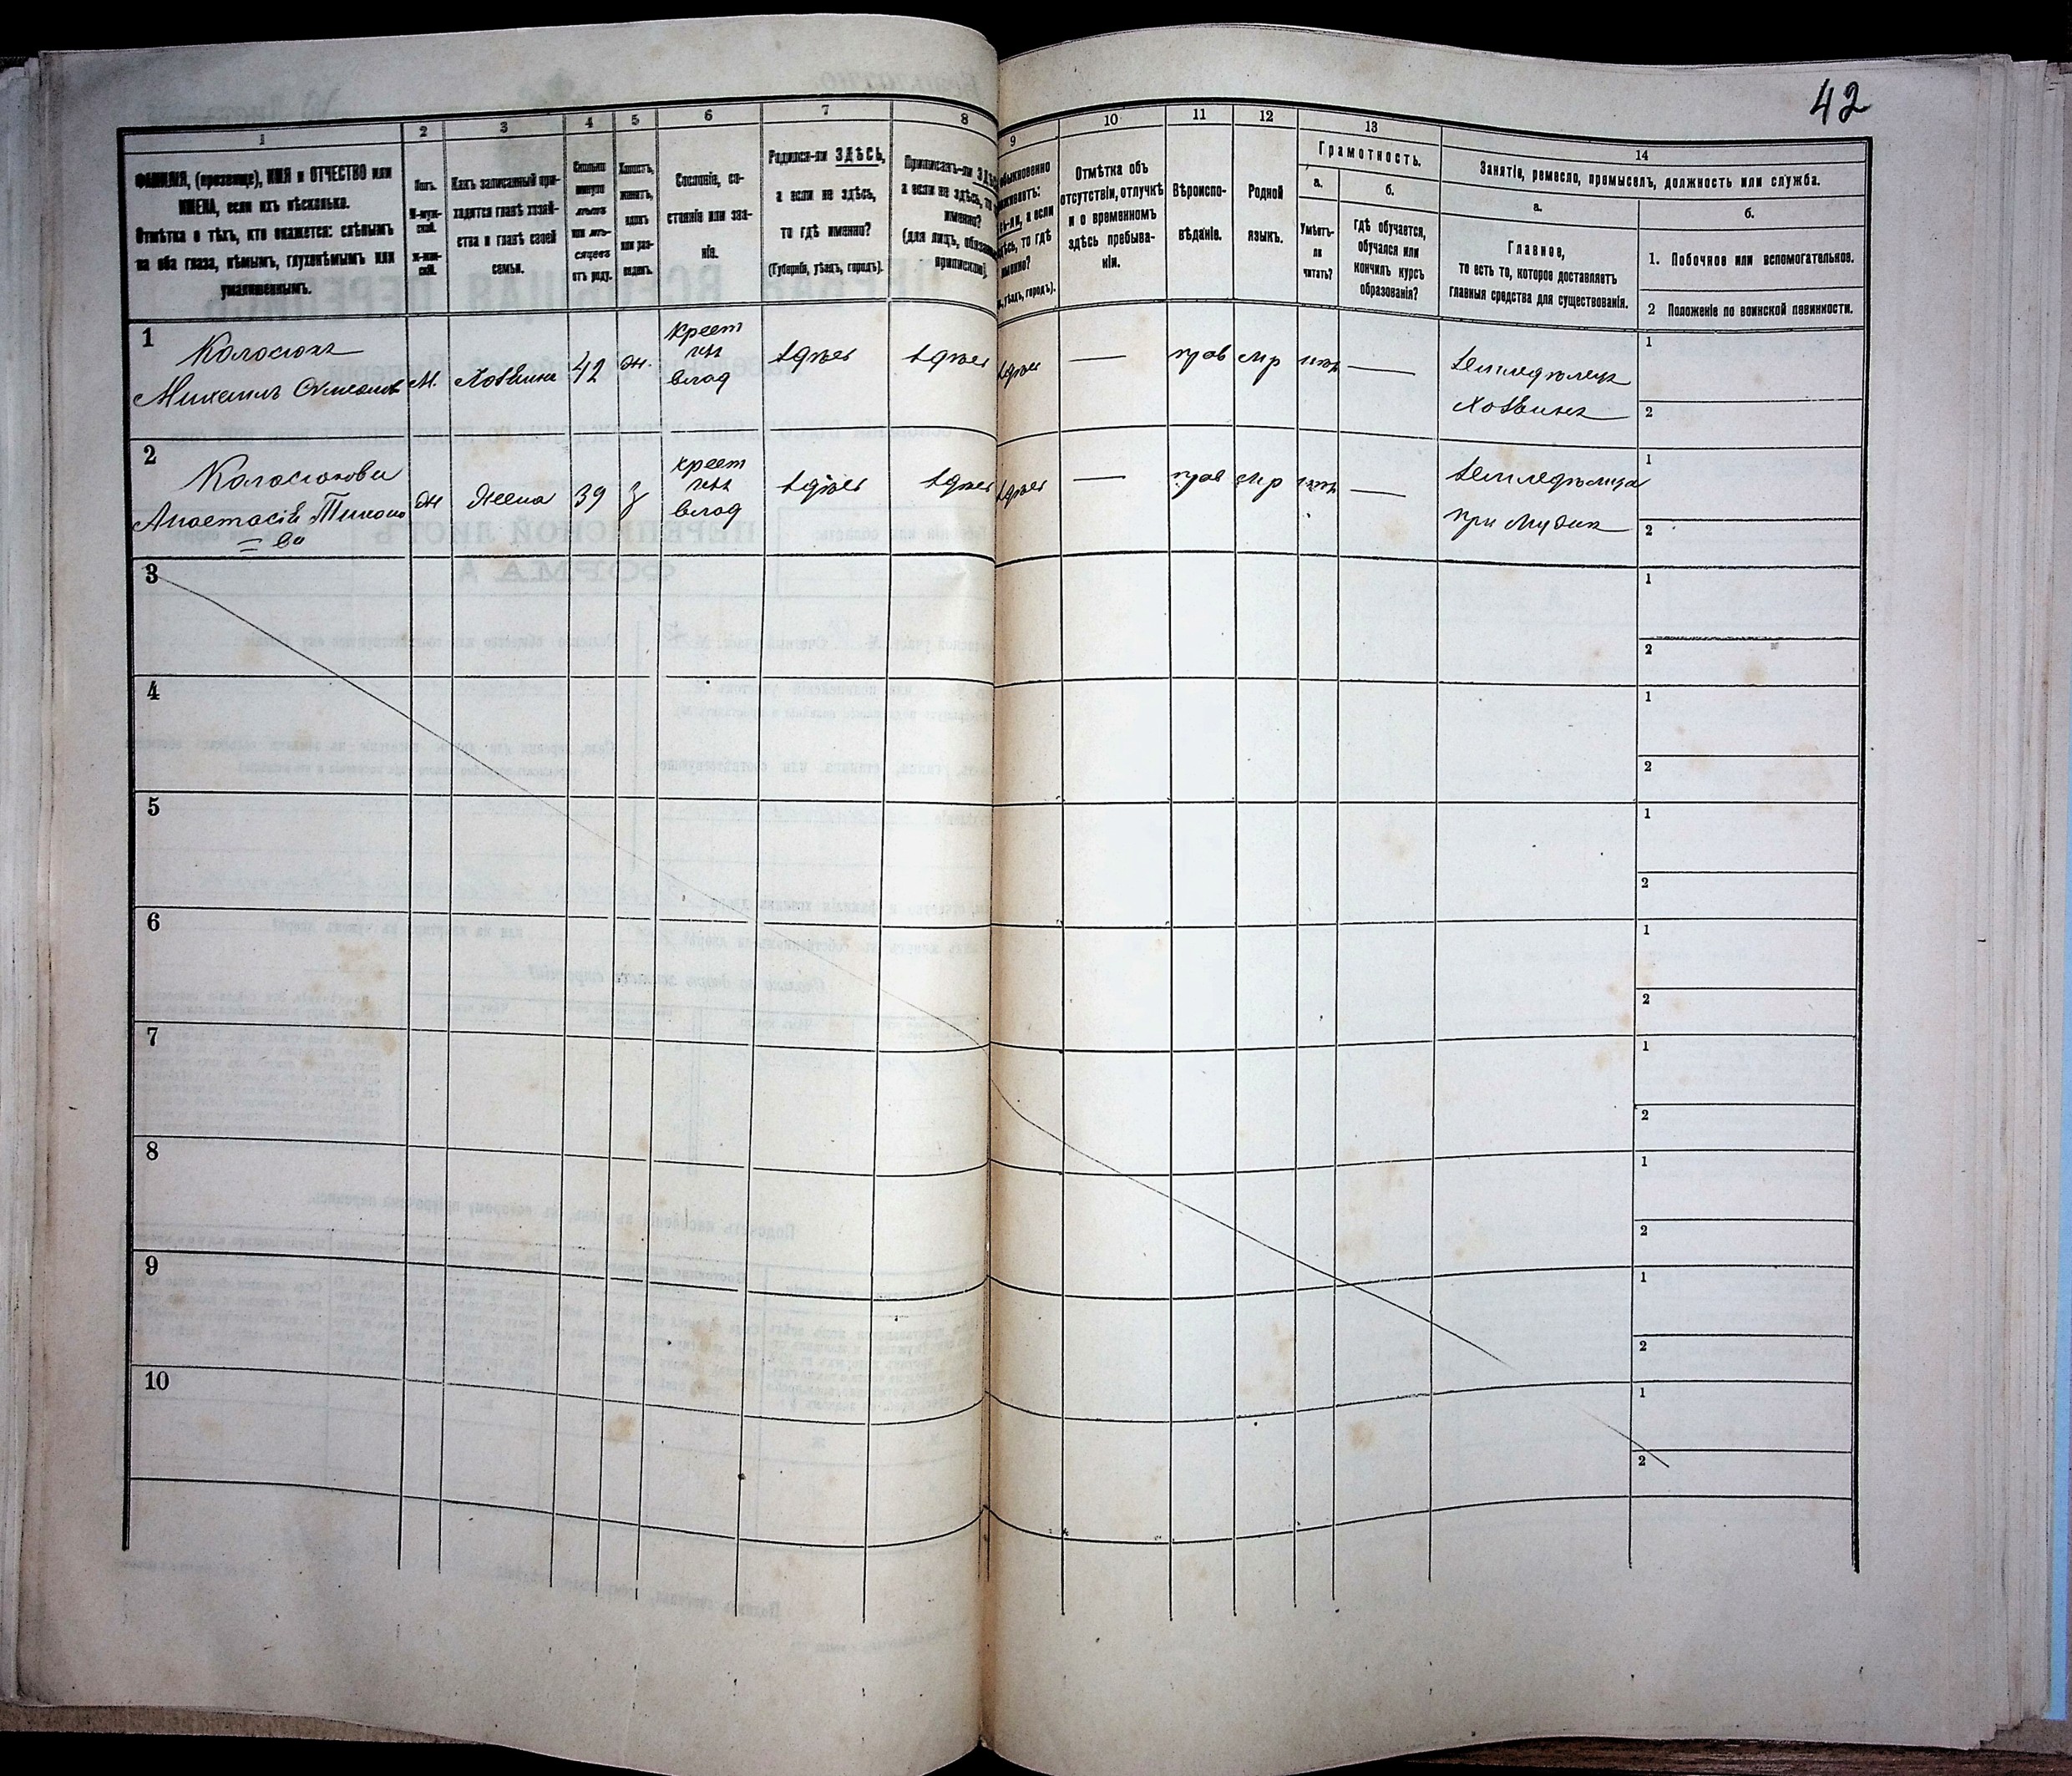 42
1
2
3
4
5
6
7
8
9
10
11
12
13
14
ФАМИЛІЯ, (прозвище), ИМЯ и ОТЧЕСТВО или
ИМЕНА, если ихъ нѣсколько.
Отмѣтка о тѣхъ, кто окажется: слѣпымъ
на оба глаза, нѣмымъ, глухонѣмымъ или
умалишеннымъ.
Полъ.
М-муж-
ской.
Ж-жен-
скій.
Какъ записанный при-
ходится главѣ хозяй-
ства и главѣ своей
семьи.
Сколько
минуло
лѣтъ
или мѣ-
сяцевъ
отъ роду.
Холостъ,
женатъ,
вдовъ
или раз-
веденъ.
Сословіе, со-
стояніе или зва-
ніе.
Родился-ли ЗДѢСЬ,
а если не здѣсь,
то гдѣ именно?
(Губернія, уѣздъ, городъ).
Приписанъ-ли
а если не здѣсь, то
именно?
(для лицъ, обязан
приписки).
обыкновенно
а если
здѣсь, то гдѣ
именно?
уѣздъ, городъ).
Отмѣтка объ
отсутствіи, отлучкѣ
и о временномъ
здѣсь пребыва-
ніи.
Вѣроиспо-
вѣданіе.
Родной
языкъ.
Грамотность.
а.
б.
Умѣетъ-
ли
читать?
гдѣ обучается,
обучался или
кончилъ курсъ
образованія?
Занятіе, ремесло, промыселъ, должность или служба.
а.
б.
Главное,
то есть то, которое доставляетъ
главныя средства для существованія.
1. Побочное или вспомогательное.
2 Положеніе по воинской повинности.
1
Колосюкъ
Михаилъ
М.
Хозяинъ
42
ж.
крест
изъ
влад
здѣсь
здѣсь
здѣсь
—
прав
мр
—
земледѣлецъ
Хозяинъ
1
2
2
Колосюкова
Анастасія Тихоно
= ва
ж
Жена
39
з
крест
изъ
влад
здѣсь
здѣсь
здѣсь
—
прав
мр
—
при мужѣ
1
2
3
1
2
4
1
2
5
1
2
6
1
2
7
1
2
8
1
2
9
1
2
10
1
2